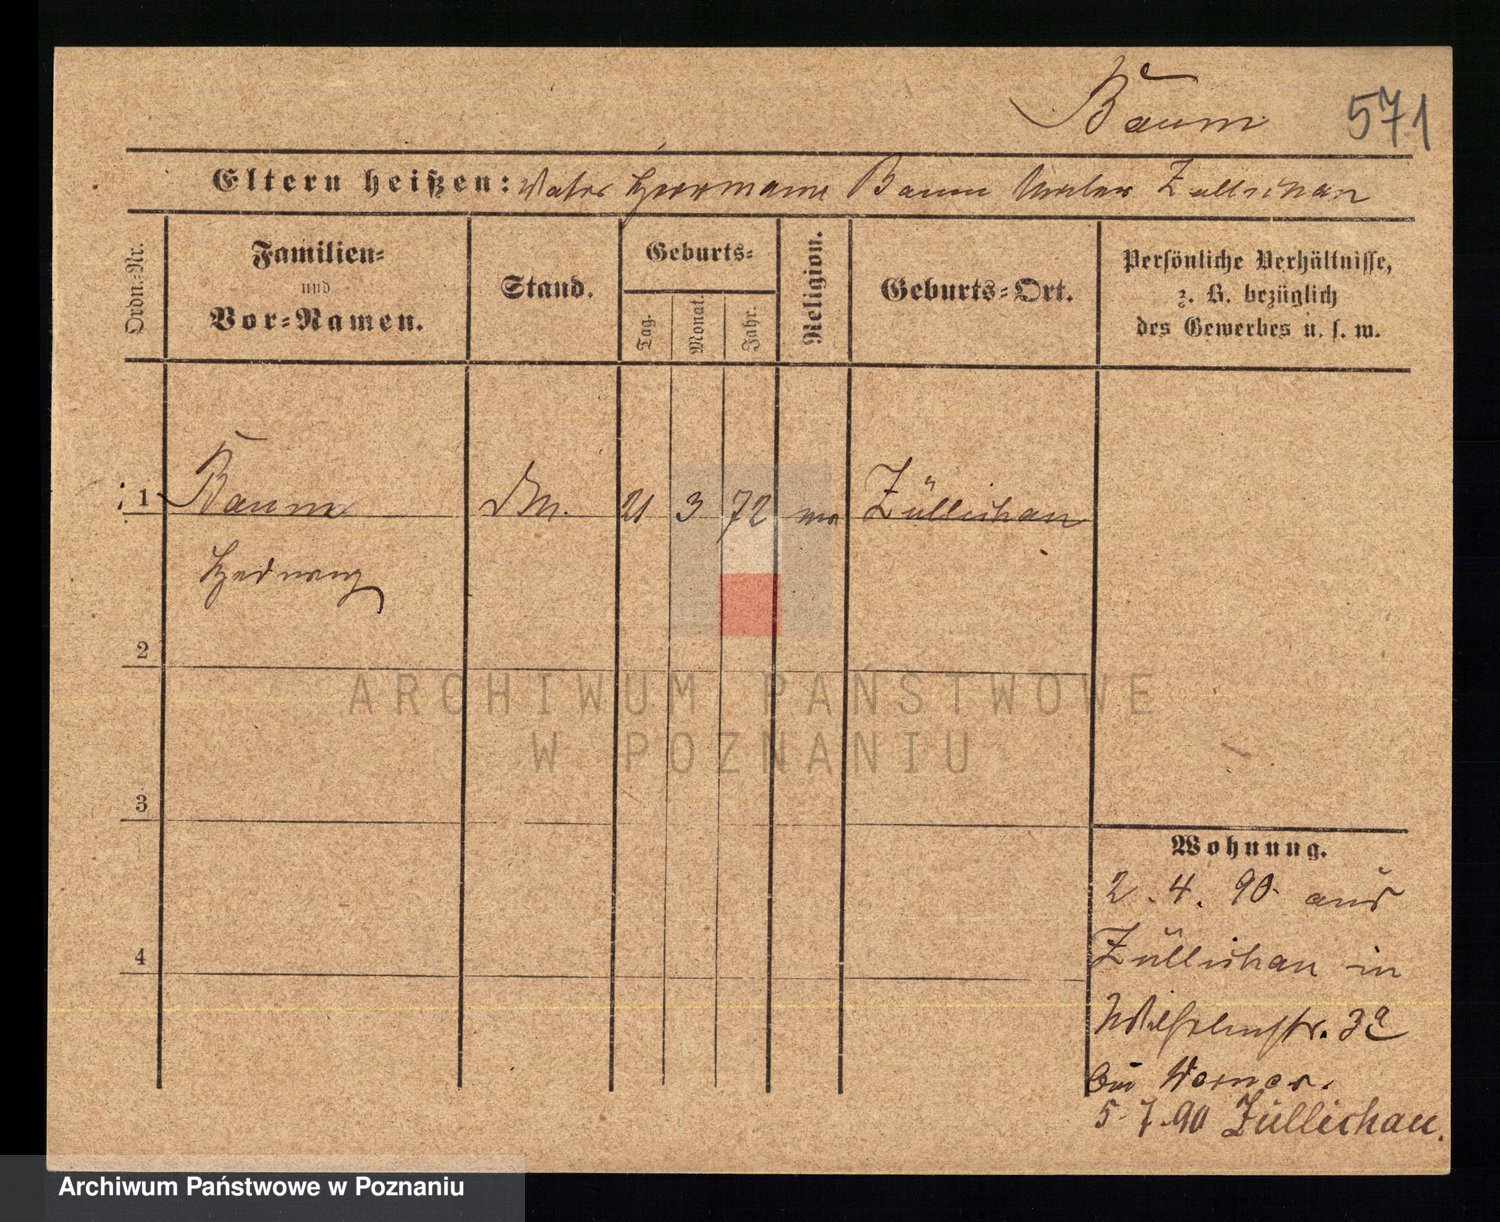 Baum 571
Eltern heißen: Vater Herrmann Baum Züllichau
Ordn.-Nr.
Familien-
und
Vor-Namen.
Stand.
Geburts-
Tag.
Monat.
Jahr.
Religion.
Geburts-Ort.
Persönliche Verhältnisse,
z. B. bezüglich
des Gewerbes u. s. w.
1 Baum 21 3 72 Züllichau
Hedwig
2
3
4
Wohnung.
2. 4. 90 aus
Züllichau in
Wilhelmstr. 3a
bei Werner.
5.7.90 Züllichau.
ARCHIWUM PAŃSTWOWE
W POZNANIU
Archiwum Państwowe w Poznaniu